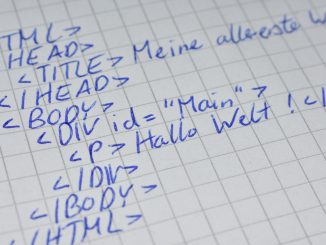 TML>
HEAD>
<TITLE> Meine allererste W
</HEAD>
<BODY>
<DIV id="Main">
<P> Hallo Welt ! </
</DIV>
</BODY>
</HTML>